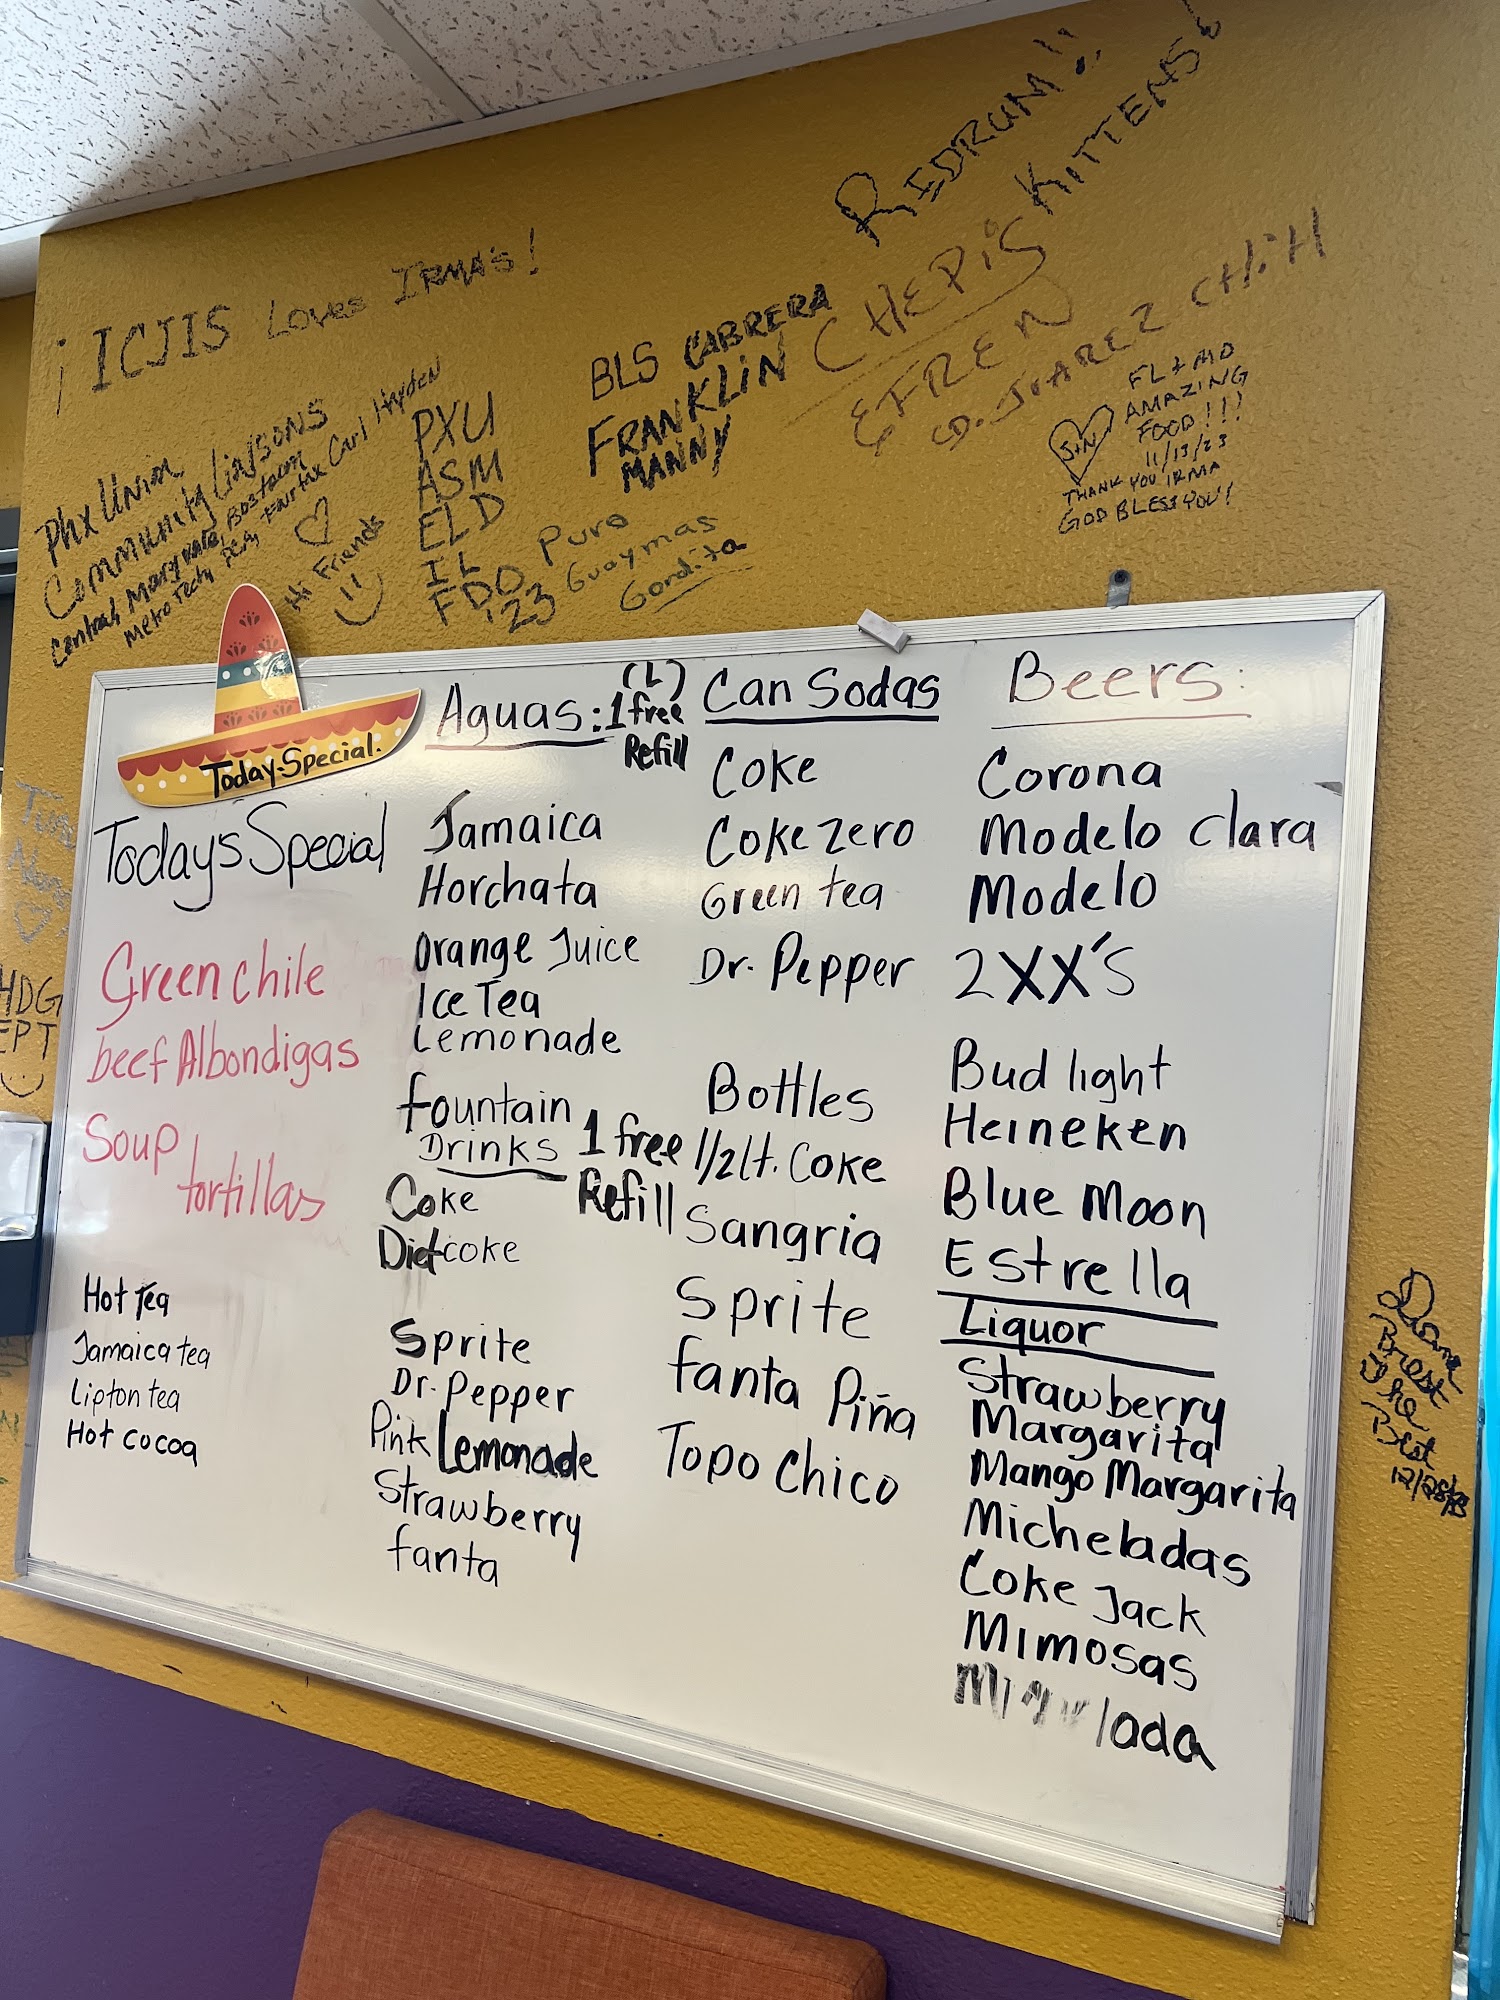 REDRUM!!
KITTENS!
¡ICJIS Loves IRMA's!
BLS CABRERA
FRANKLIN
MANNY
CHEPIS
EFREN
CD. JUAREZ CHIH
FL + MD
AMAZING
FOOD!!!
11/13/23
THANK YOU IRMA
GOD BLESS YOU!
J+N
Phx Union
Community Liasons
Central Maryvale Bostrom
Metro Tech, Fairfax Carl Hayden
Hi Friends
PXU
ASM
ELD
IL
FDO
'23
Puro
Guaymas
Gordita
Today.Special.
Todays Special
Green chile
beef Albondigas
Soup
tortillas
Hot Tea
Jamaica tea
Lipton tea
Hot cocoa
Aguas: (L)
1 free
Refill
Jamaica
Horchata
Orange Juice
Ice Tea
Lemonade
fountain
Drinks 1 free
Refill
Coke
Diet coke
Sprite
Dr. Pepper
Pink Lemonade
Strawberry
fanta
Can Sodas
Coke
Coke Zero
Green tea
Dr. Pepper
Bottles
1/2 Lt. Coke
Sangria
Sprite
fanta Piña
Topo Chico
Beers:
Corona
Modelo Clara
Modelo
2XX'S
Bud light
Heineken
Blue Moon
Estrella
Liquor
Strawberry
Margarita
Mango Margarita
Micheladas
Coke Jack
Mimosas
lada
HDG
EPT
Brest
The
Best